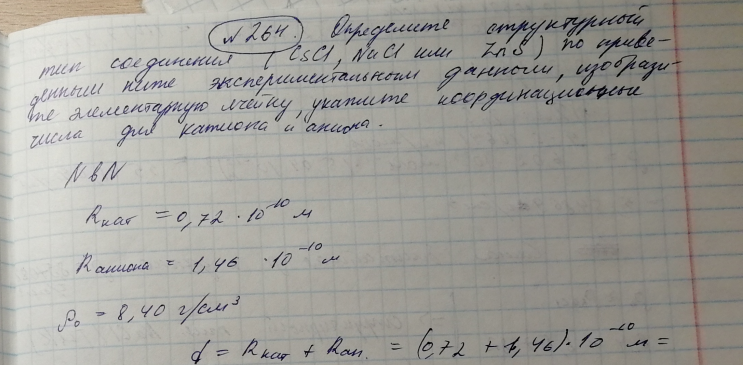 № 264. Определите структурный
тип соединения (CsCl, NaCl или ZnS) по приве-
денным ниже экспериментальным данным, изобрази-
те элементарную ячейку, укажите координационные
числа для катиона и аниона.
NbN
Rкат = 0,72 · 10⁻¹⁰ м
Rаниона = 1,46 · 10⁻¹⁰ м
ρ₀ = 8,40 г/см³
d = Rкат + Rан. = (0,72 + 1,46) · 10⁻¹⁰ м =